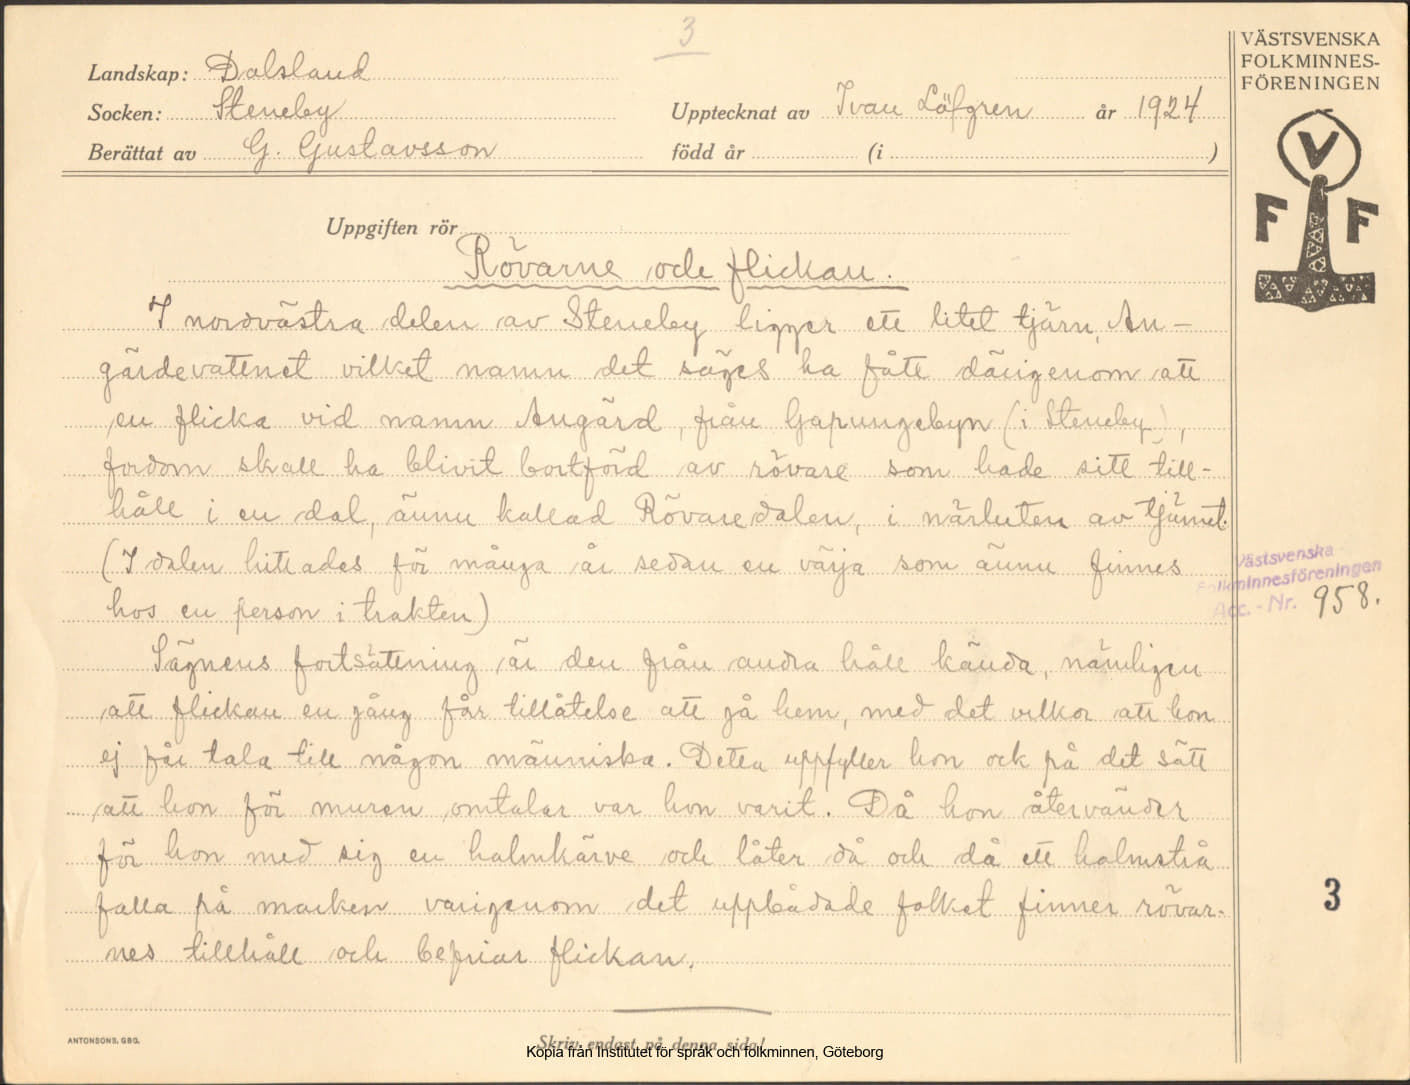 3
VÄSTSVENSKA
FOLKMINNES-
FÖRENINGEN
Landskap: Dalsland
Socken: Steneby
Upptecknat av Ivan Löfgren år 1924
Berättat av G. Gustavsson
född år (i )
V
F F
Uppgiften rör
Rövarne och flickan.
I nordvästra delen av Steneby ligger ett litet tjärn, An-
gärdevattnet vilket namn det säges ha fått därigenom att
en flicka vid namn Angärd, från Gapungebyn (i Steneby),
fordom skall ha blivit bortförd av rövare som hade sitt till-
håll i en dal, ännu kallad Rövaredalen, i närheten av tjärnet.
(I dalen hittades för många år sedan en värja som ännu finnes
hos en person i trakten)
Västsvenska
Folkminnesföreningen
Acc. - Nr. 958.
Sägnens fortsättning är den från andra håll kända, nämligen
att flickan en gång får tillåtelse att gå hem, med det vilkor att hon
ej får tala till någon människa. Detta uppfyller hon ock på det sätt
att hon för muren omtalar var hon varit. Då hon återvänder
för hon med sig en halmkärve och låter då och då ett halmstrå
falla på marken varigenom det uppbådade folket finner rövar-
nes tillhåll och befriar flickan.
3
ANTONSONS, GBG.
Skriv endast på denna sida!
Kopia från Institutet för språk och folkminnen, Göteborg